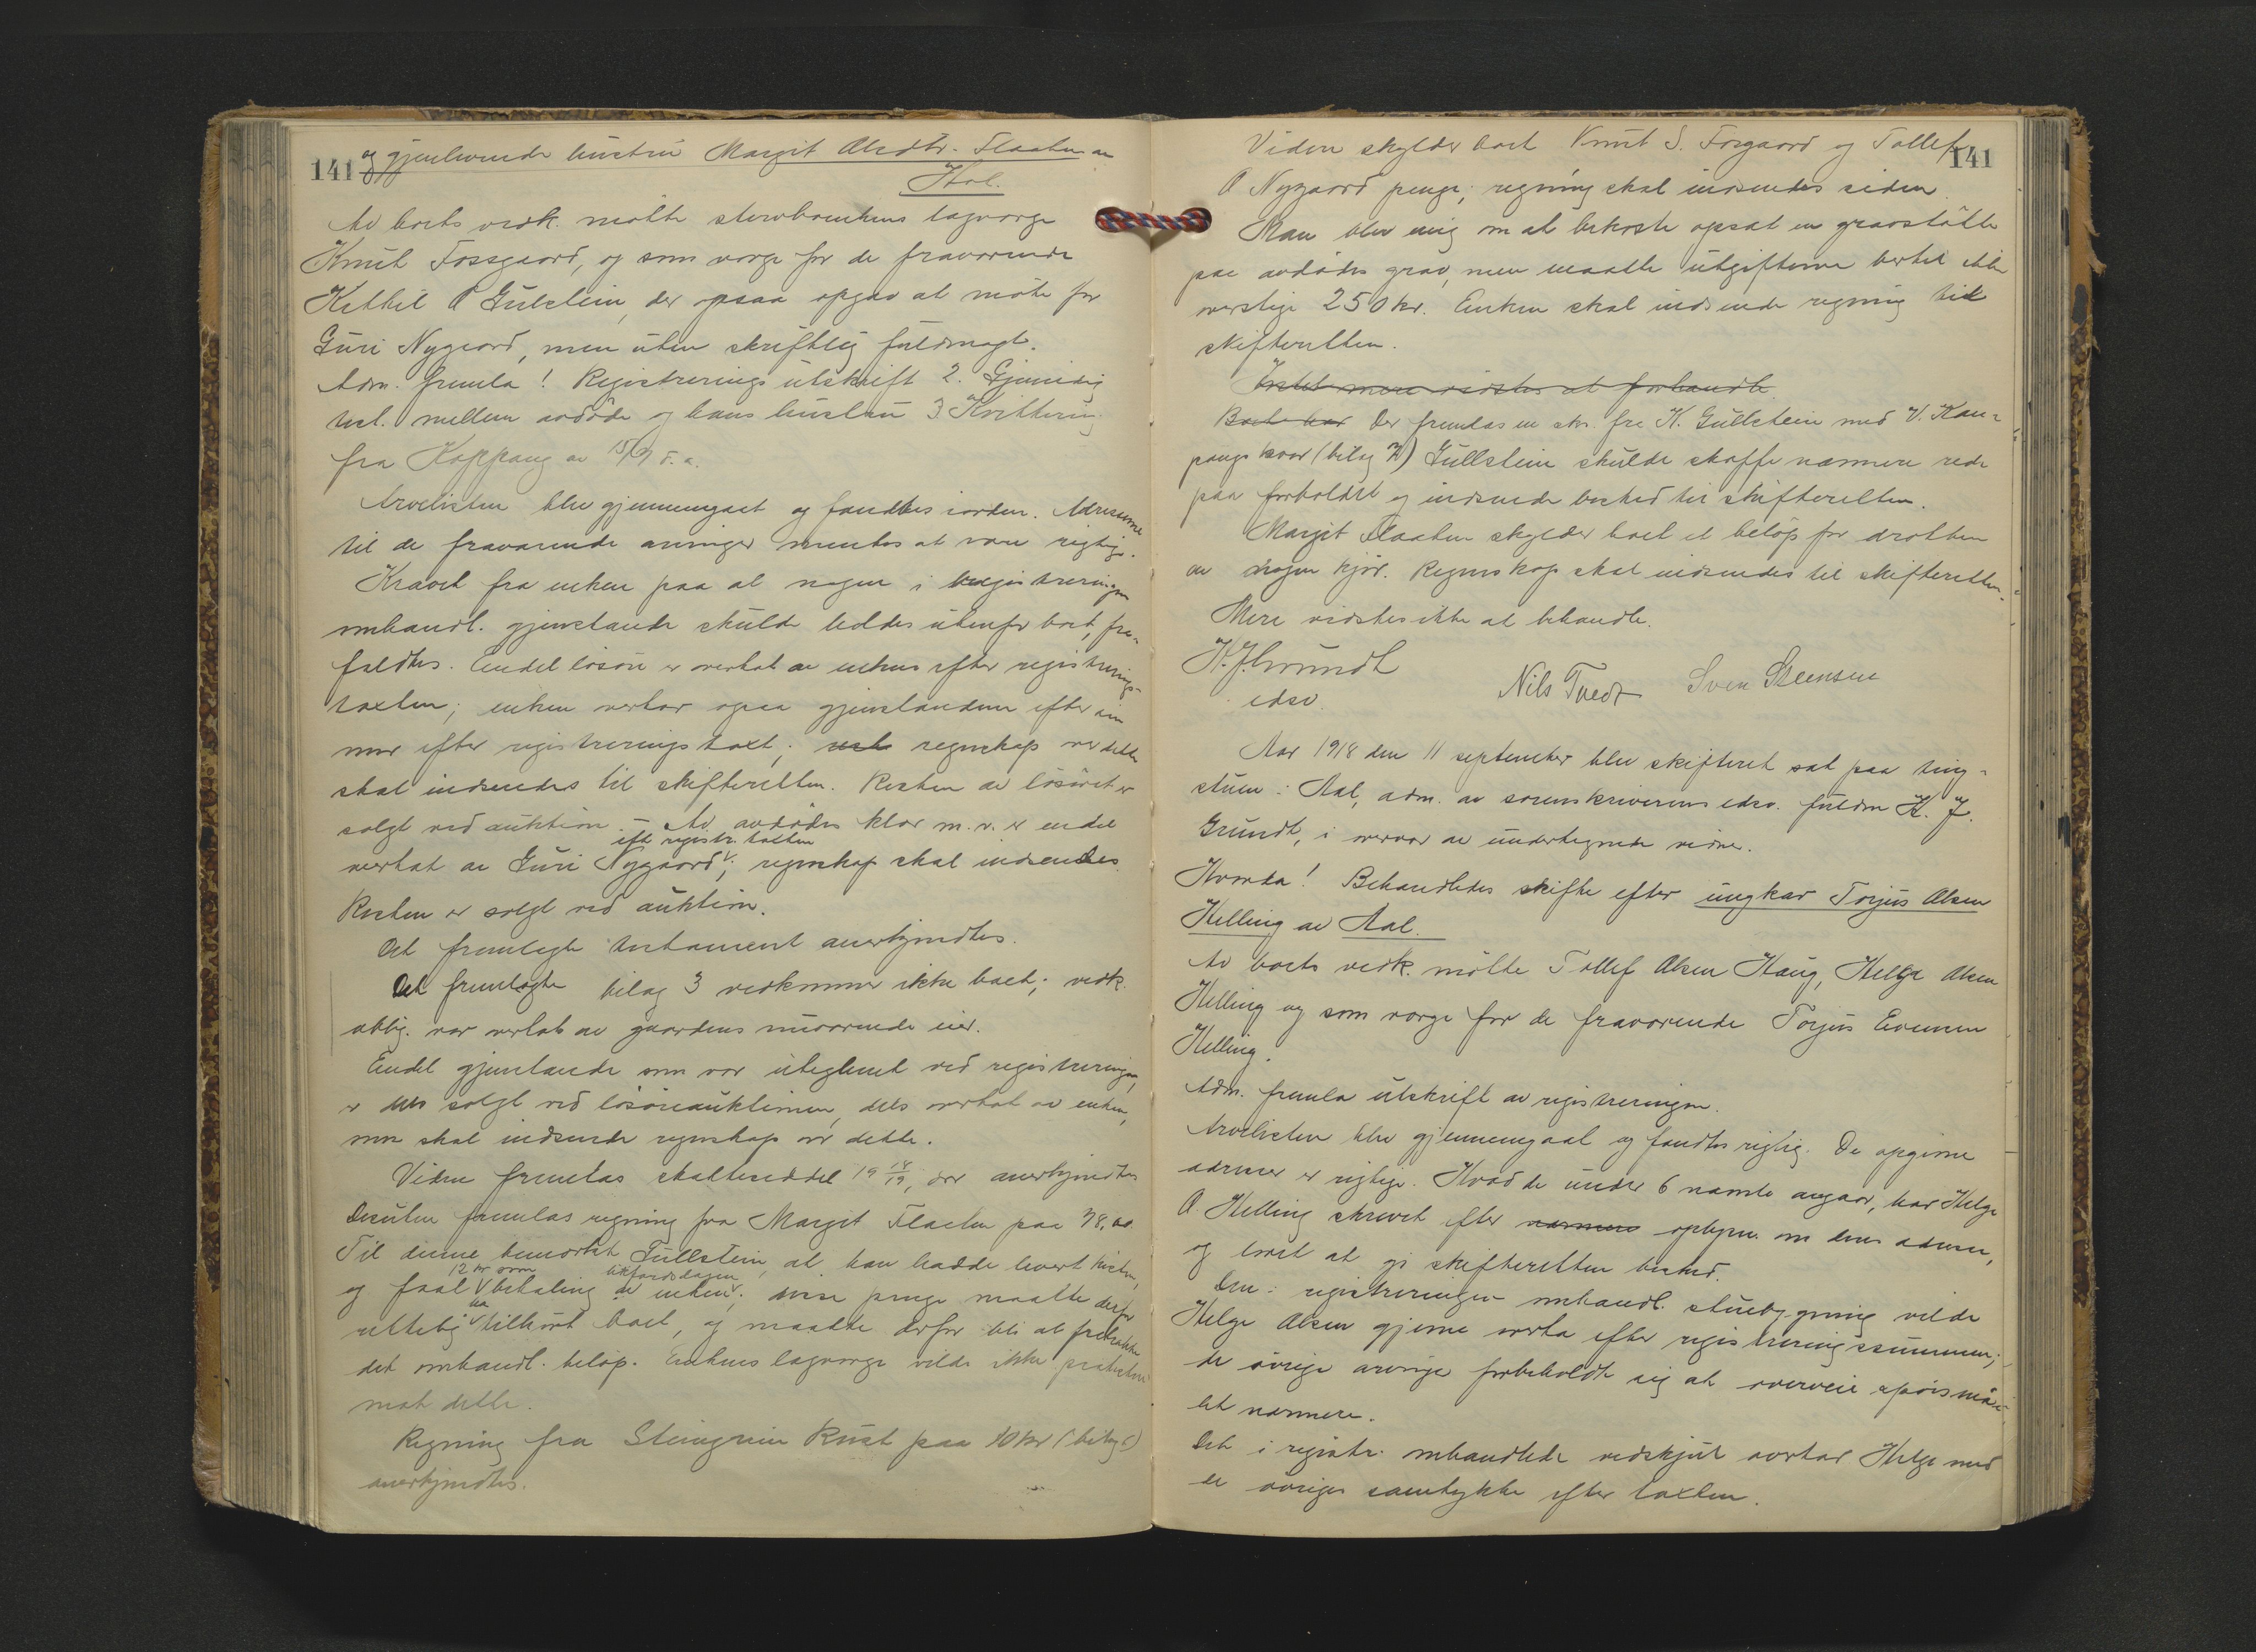 141 og gjenlevende hustru Margit Alsdtr. Flaaten av
Hol.
Av boets vedk. møtte stervboenkens lagverge
Knut Fossgaard, og som verge for de fraværende
Kettil O Gulstein, der ogsaa opgav at møte for
Guri Nygaard, men uten skriftlig fuldmagt.
Adm. fremla: 1. Registrerings utskrift 2. Gjensidig
test. mellem avdøde og hans hustru 3 Kvittering
fra Koppang av 15/7 d. a.
Arvelisten blev gjennemgaat og fandtes iorden. Adresserne
til de fraværende arvinger mentes at være rigtige.
Kravet fra enken paa at nogen i registreringen
omhandl. gjenstande skulde holdes utenfor boet, fra-
faldtes. Endel løsøre er overtat av enken efter registrerings-
taxten; enken overtar ogsaa gjenstandene efter
mer efter registreringstaxt; regnskap over dette
skal indsendes til skifteretten. Resten av løsøret er
solgt ved auktion. – Av avdødes klær m.v. er endel
efter registr. taxten
overtat av Guri Nygaard; regnskap skal indsendes.
Resten er solgt ved auktion.
Det fremlagte testament anerkjendtes.
Det fremlagte bilag 3 vedkommer ikke boet; vedk.
oblig. var overtat av gaardens nuværende eier.
Endel gjenstande som var uteglemt ved registreringen,
er dels solgt ved løsøreauktionen, dels overtat av enken,
som skal indsende regnskap over dette.
Videre fremlas skatteseddel 19 18/19, der anerkjendtes
Desuten fremlas regning fra Margit Flaaten paa 78,00
Til denne bemerket Gullstein, at han hadde levert kisten,
12 kr som likfærdsdagen
og faat betaling av enken; disse penge maatte derfor
ha
rettelig tilhørt boet, og maatte derfor bli at fratrække
det omhandl. beløp. Enkens lagverge vilde ikke protestere
mot dette.
Regning fra Steingrim Rust paa 10 kr (bilag 6)
anerkjendtes.
141
Videre skylder boet Knut S. Fosgaard og Tollef
O Nygaard penge; regning skal indsendes siden
Man blev enig om at bekoste opsat en gravstøtte
paa avdødes grav, men maatte utgifterne hertil ikke
overstige 250 kr. Enken skal indsende regning til
skifteretten.
Intet mere vidstes at forhandle.
Boet har Der fremlas en skr. fra K. Gullstein med V. Kau-
pangs svar (bilag 7) Gullstein skulde skaffe nærmere rede
paa forholdet og indsende besked til skifteretten.
Margit Flaaten skylder boet et beløp for drotten
av nogen kjør. Regnskap skal indsendes til skifteretten.
Mere vidstes ikke at behandle.
K. J. Grundt
edsv.
Nils Tvedt Sven Steensen
Aar 1918 den 11 september blev skifteret sat paa ting-
stuen i Aal, adm. av sorenskriverens edsv. fuldm K. J.
Grundt, i overvær av undertegnede vidne.
Hvorda! Behandledes skifte efter ungkar Torjus Olsen
Helling av Aal.
Av boets vedk. møtte Tollef Olsen Haug, Helge Olsen
Helling og som verge for de fraværende Torjus Evensen
Helling.
Adm. fremla utskrift av registreringen.
Arvelisten blev gjennemgaat og fandtes rigtig. De opgivne
adresser er rigtige. Hvad de under 6 nævnte angaar, har Helge
O Helling skrevet efter nærmere oplysn. om deres adresser,
og lovet at gi skifteretten besked.
Den i registreringen omhandl. stuebygning vilde
Helge Olsen gjerne overta efter registreringssummen;
de øvrige arvinger forbeholdt sig at overveie spørsmaa-
let nærmere.
Det i registr. omhandlede vedskjul overtar Helge med
de øvriges samtykke efter taxten.